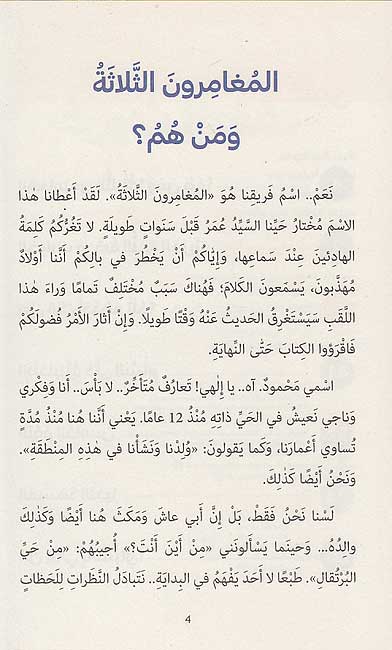 المُغامِرونَ الثَّلاثَةُ
وَمَنْ هُمُ؟
نَعَمْ.. اسْمُ فَريقِنا هُوَ «المُغامِرونَ الثَّلاثَةُ». لَقَدْ أَعْطانا هٰذا
الاسْمَ مُخْتارُ حَيِّنا السَّيِّدُ عُمَرُ قَبْلَ سَنَواتٍ طَويلَةٍ. لا تَغُرُّكُمْ كَلِمَةُ
الهادِئينَ عِنْدَ سَماعِها، وَإِيّاكُمْ أَنْ يَخْطُرَ في بالِكُمْ أَنَّنا أَوْلادٌ
مُهَذَّبونَ، يَسْمَعونَ الكَلامَ؛ فَهُناكَ سَبَبٌ مُخْتَلِفٌ تَمامًا وَراءَ هٰذا
اللَّقَبِ سَيَسْتَغْرِقُ الحَديثُ عَنْهُ وَقْتًا طَويلًا. وَإِنْ أَثارَ الأَمْرُ فُضولَكُمْ
فَاقْرَؤوا الكِتابَ حَتَّى النِّهايَةِ.
اسْمي مَحْمودٌ. آه.. يا إِلٰهي! تَعارُفٌ مُتَأَخِّرٌ.. لا بَأْسَ.. أَنا وَفِكْري
وَناجي نَعيشُ في الحَيِّ ذاتِهِ مُنْذُ 12 عامًا. يَعْني أَنَّنا هُنا مُنْذُ مُدَّةٍ
تُساوي أَعْمارَنا، وَكَما يَقولونَ: «وُلِدْنا وَنَشَأْنا في هٰذِهِ المِنْطَقَةِ».
وَنَحْنُ أَيْضًا كَذٰلِكَ.
لَسْنا نَحْنُ فَقَطْ، بَلْ إِنَّ أَبي عاشَ وَمَكَثَ هُنا أَيْضًا وَكَذٰلِكَ
والِدُهُ... وَحينَما يَسْأَلونَني «مِنْ أَيْنَ أَنْتَ؟» أُجيبُهُمْ: «مِنْ حَيِّ
البُرْتُقالِ». طَبْعًا لا أَحَدَ يَفْهَمُ في البِدايَةِ.. نَتَبادَلُ النَّظَراتِ لِلَحَظاتٍ
4